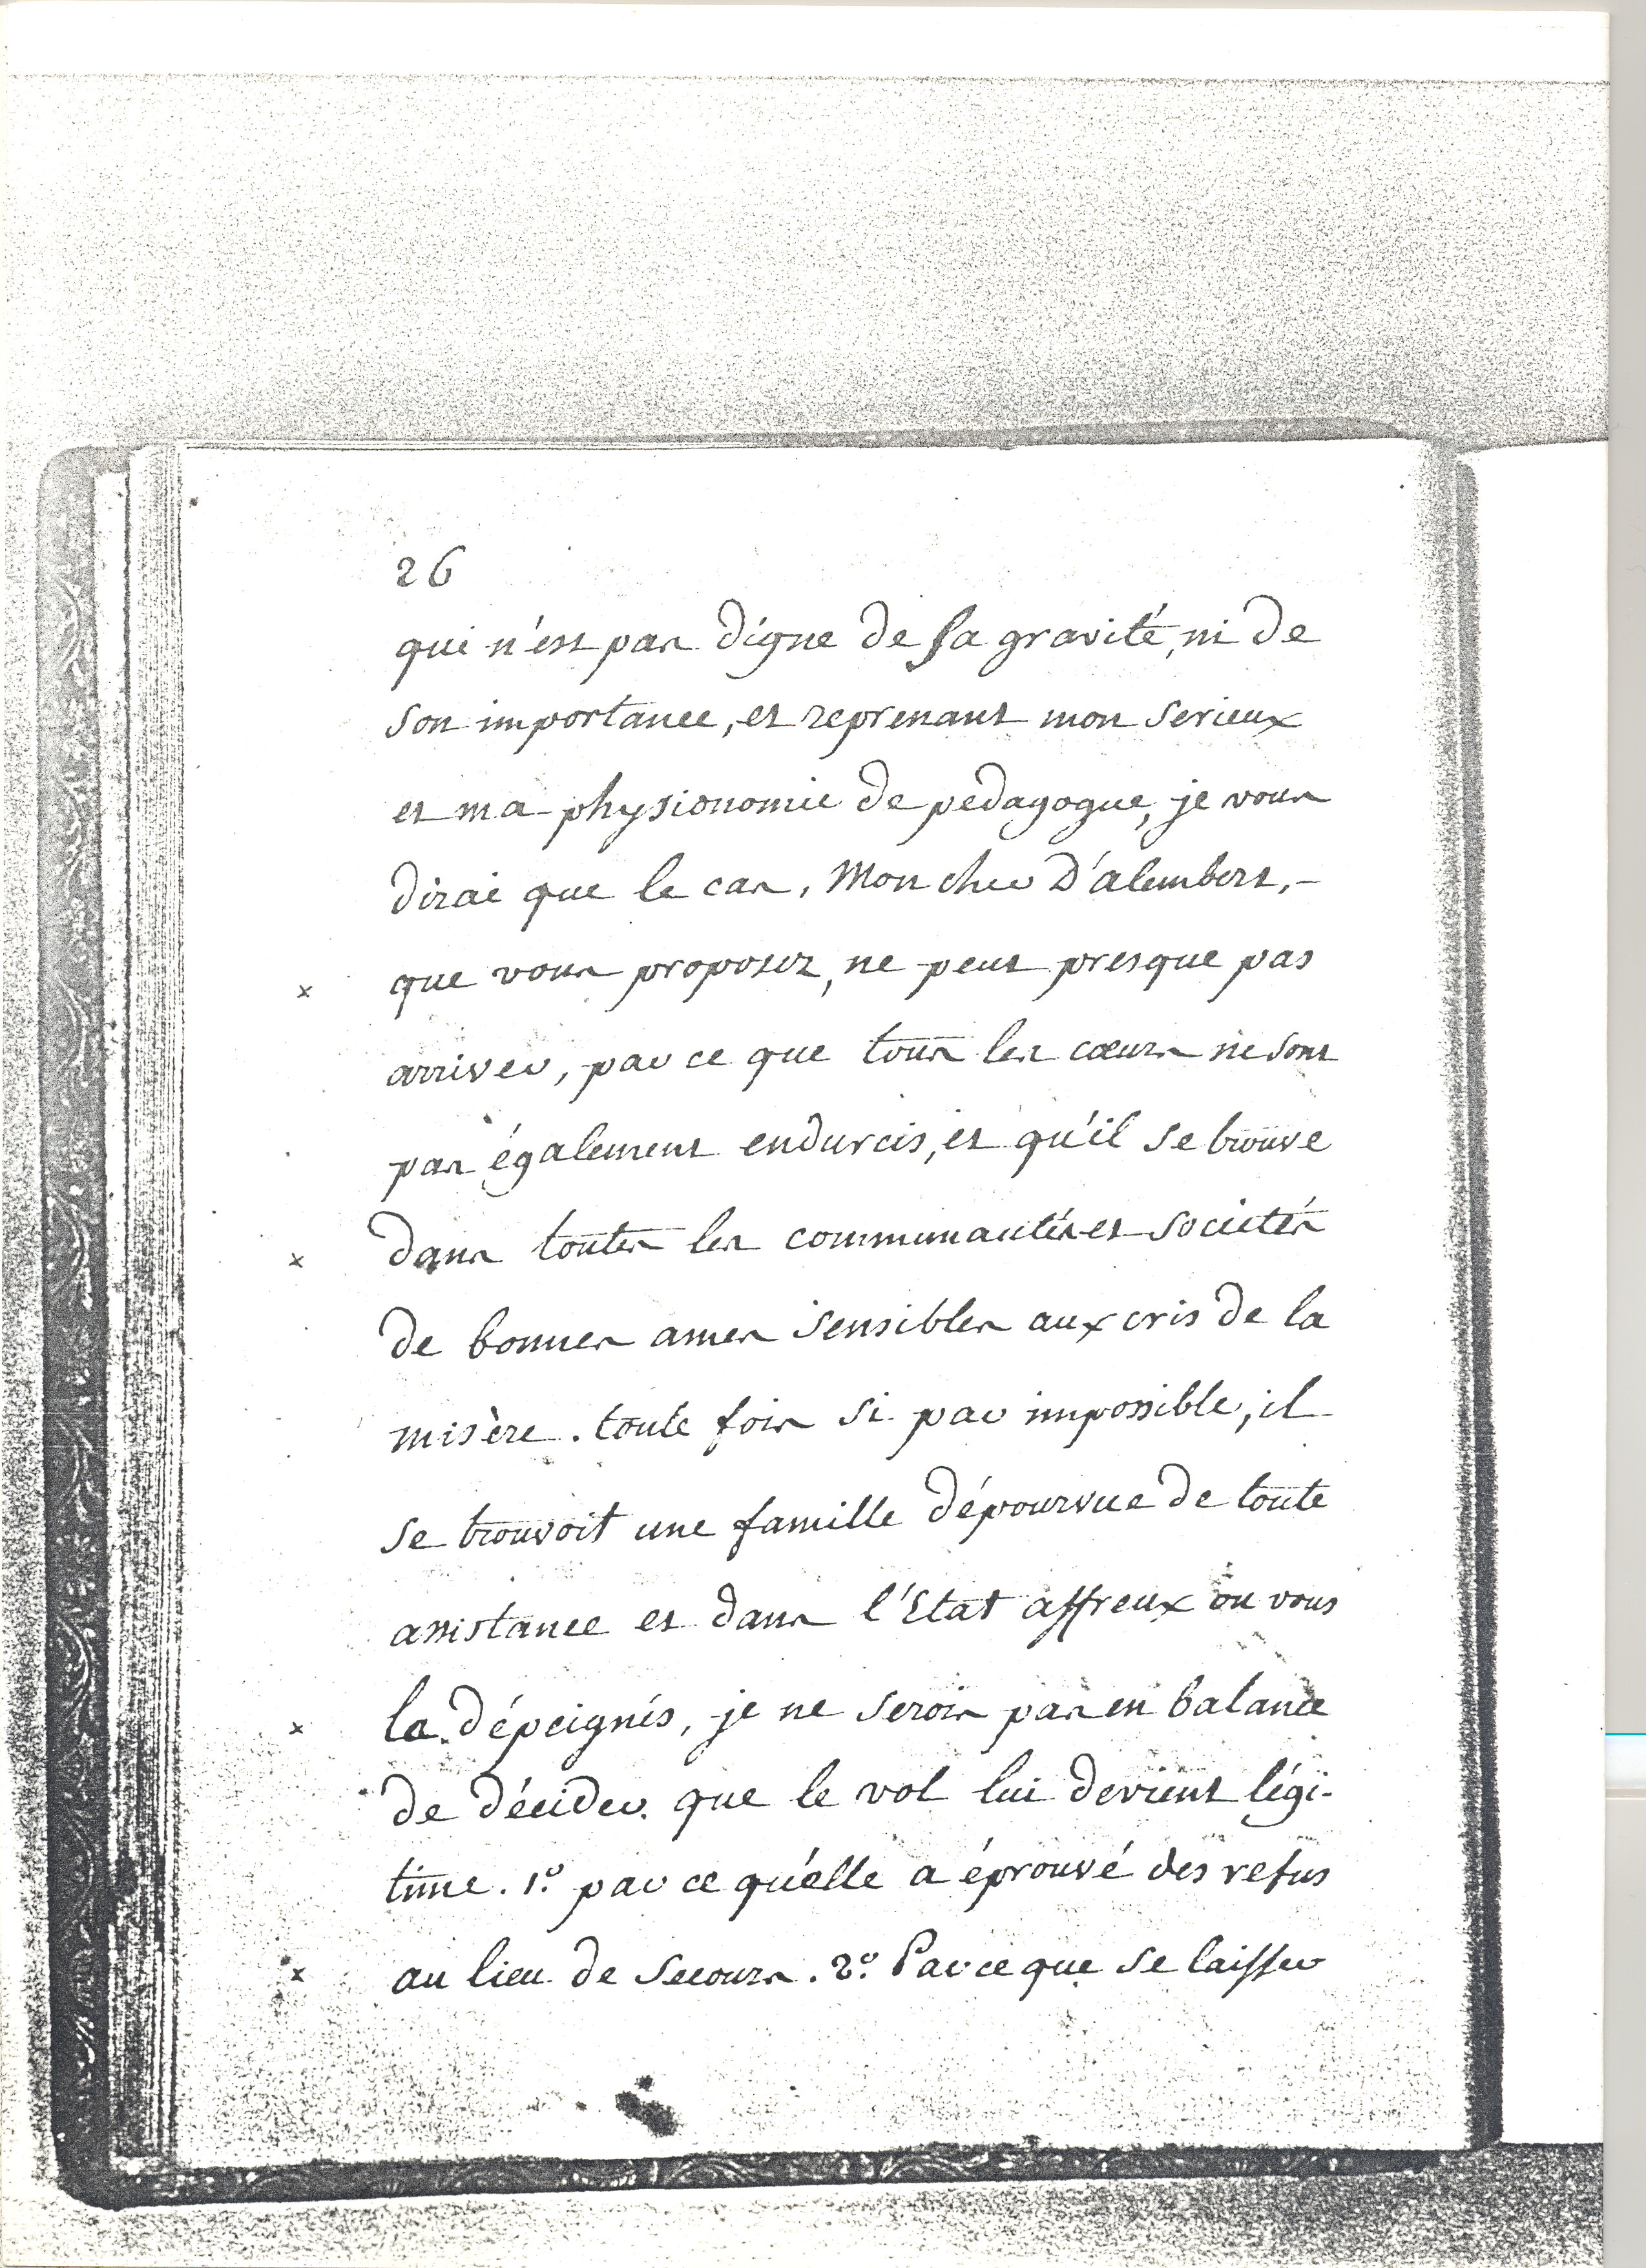 26
qui n'est pas digne de sa gravité, ni de
son importance, et reprenant mon serieux
et ma physionomie de pedagogue, je vous
dirai que le cas, Mon cher D'alembert,-
x que vous proposez, ne peut presque pas
arriver, par ce que tous les cœurs ne sont
pas également endurcis, et qu'il se trouve
x dans toutes les communautés et societés
de bonnes ames sensibles aux cris de la
misère. toute fois si par impossible, il
se trouvoit une famille dépourvue de toute
assistance et dans l'Etat affreux ou vous
x la dépeignés, je ne serois pas en balance
de décider que le vol lui devient légi-
time. 1.° par ce qu'elle a éprouvé des refus
x au lieu de secours. 2.° Par ce que se laisser